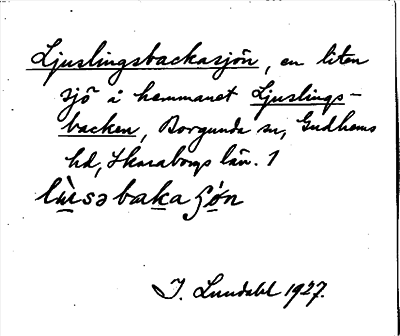 Ljuslingsbackasjön, en liten
sjö i hemmanet Ljuslings-
backen, Borgunda sn, Gudhems
hd, Skaraborgs län. 1
lùsəbakaʂön
I. Lundahl 1927.